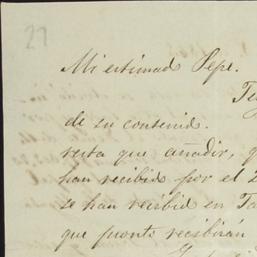 27
Mi estimado Pepe.
de su contenido.
resta que añadir, q
han recibido por el
se han recibido en Ta
que pronto recibirán